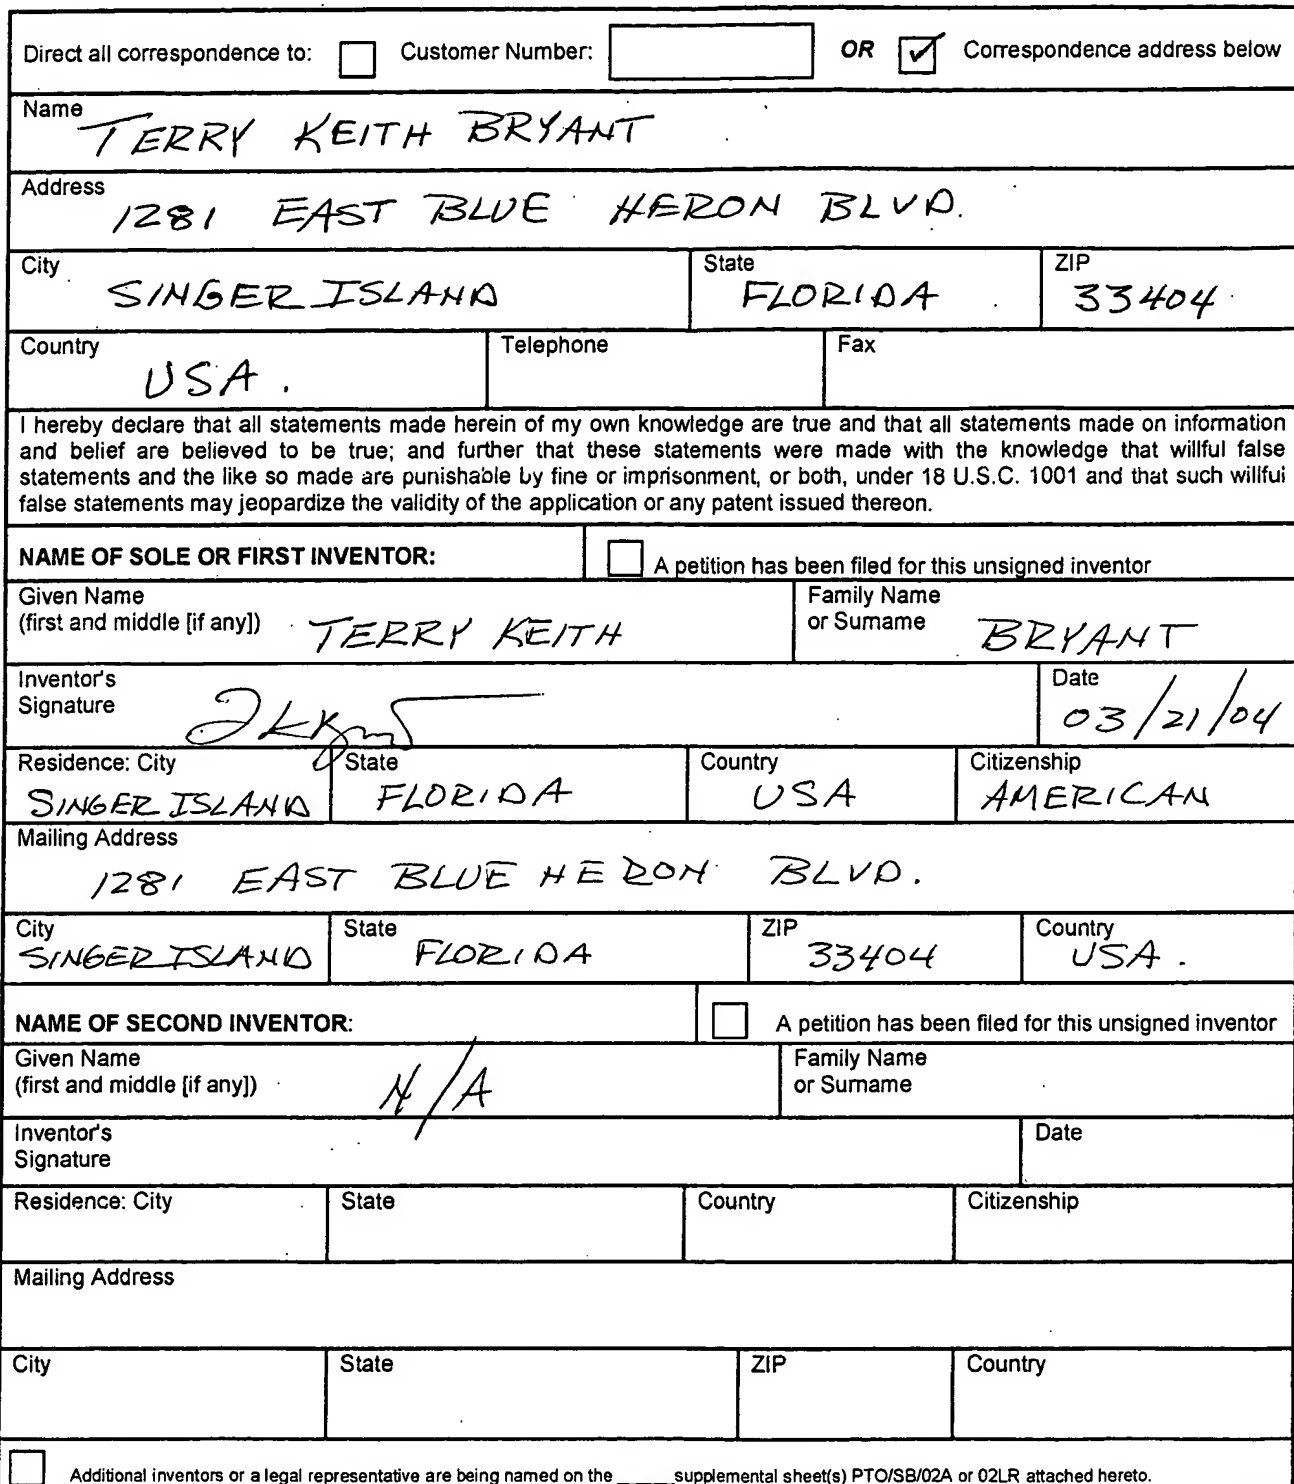 Direct all correspondence to: Customer Number: OR Correspondence address below
Name
TERRY KEITH BRYANT
Address
1281 EAST BLUE HERON BLVD.
City State ZIP
SINGER ISLAND FLORIDA 33404
Country Telephone Fax
USA.
I hereby declare that all statements made herein of my own knowledge are true and that all statements made on information
and belief are believed to be true; and further that these statements were made with the knowledge that willful false
statements and the like so made are punishable by fine or imprisonment, or both, under 18 U.S.C. 1001 and that such willful
false statements may jeopardize the validity of the application or any patent issued thereon.
NAME OF SOLE OR FIRST INVENTOR: A petition has been filed for this unsigned inventor
Given Name Family Name
(first and middle [if any]) TERRY KEITH or Surname BRYANT
Inventor's Date
Signature 03/21/04
Residence: City State Country Citizenship
SINGER ISLAND FLORIDA USA AMERICAN
Mailing Address
1281 EAST BLUE HERON BLVD.
City State ZIP Country
SINGER ISLAND FLORIDA 33404 USA.
NAME OF SECOND INVENTOR: A petition has been filed for this unsigned inventor
Given Name Family Name
(first and middle [if any]) N/A or Surname
Inventor's Date
Signature
Residence: City State Country Citizenship
Mailing Address
City State ZIP Country
Additional inventors or a legal representative are being named on the _____ supplemental sheet(s) PTO/SB/02A or 02LR attached hereto.